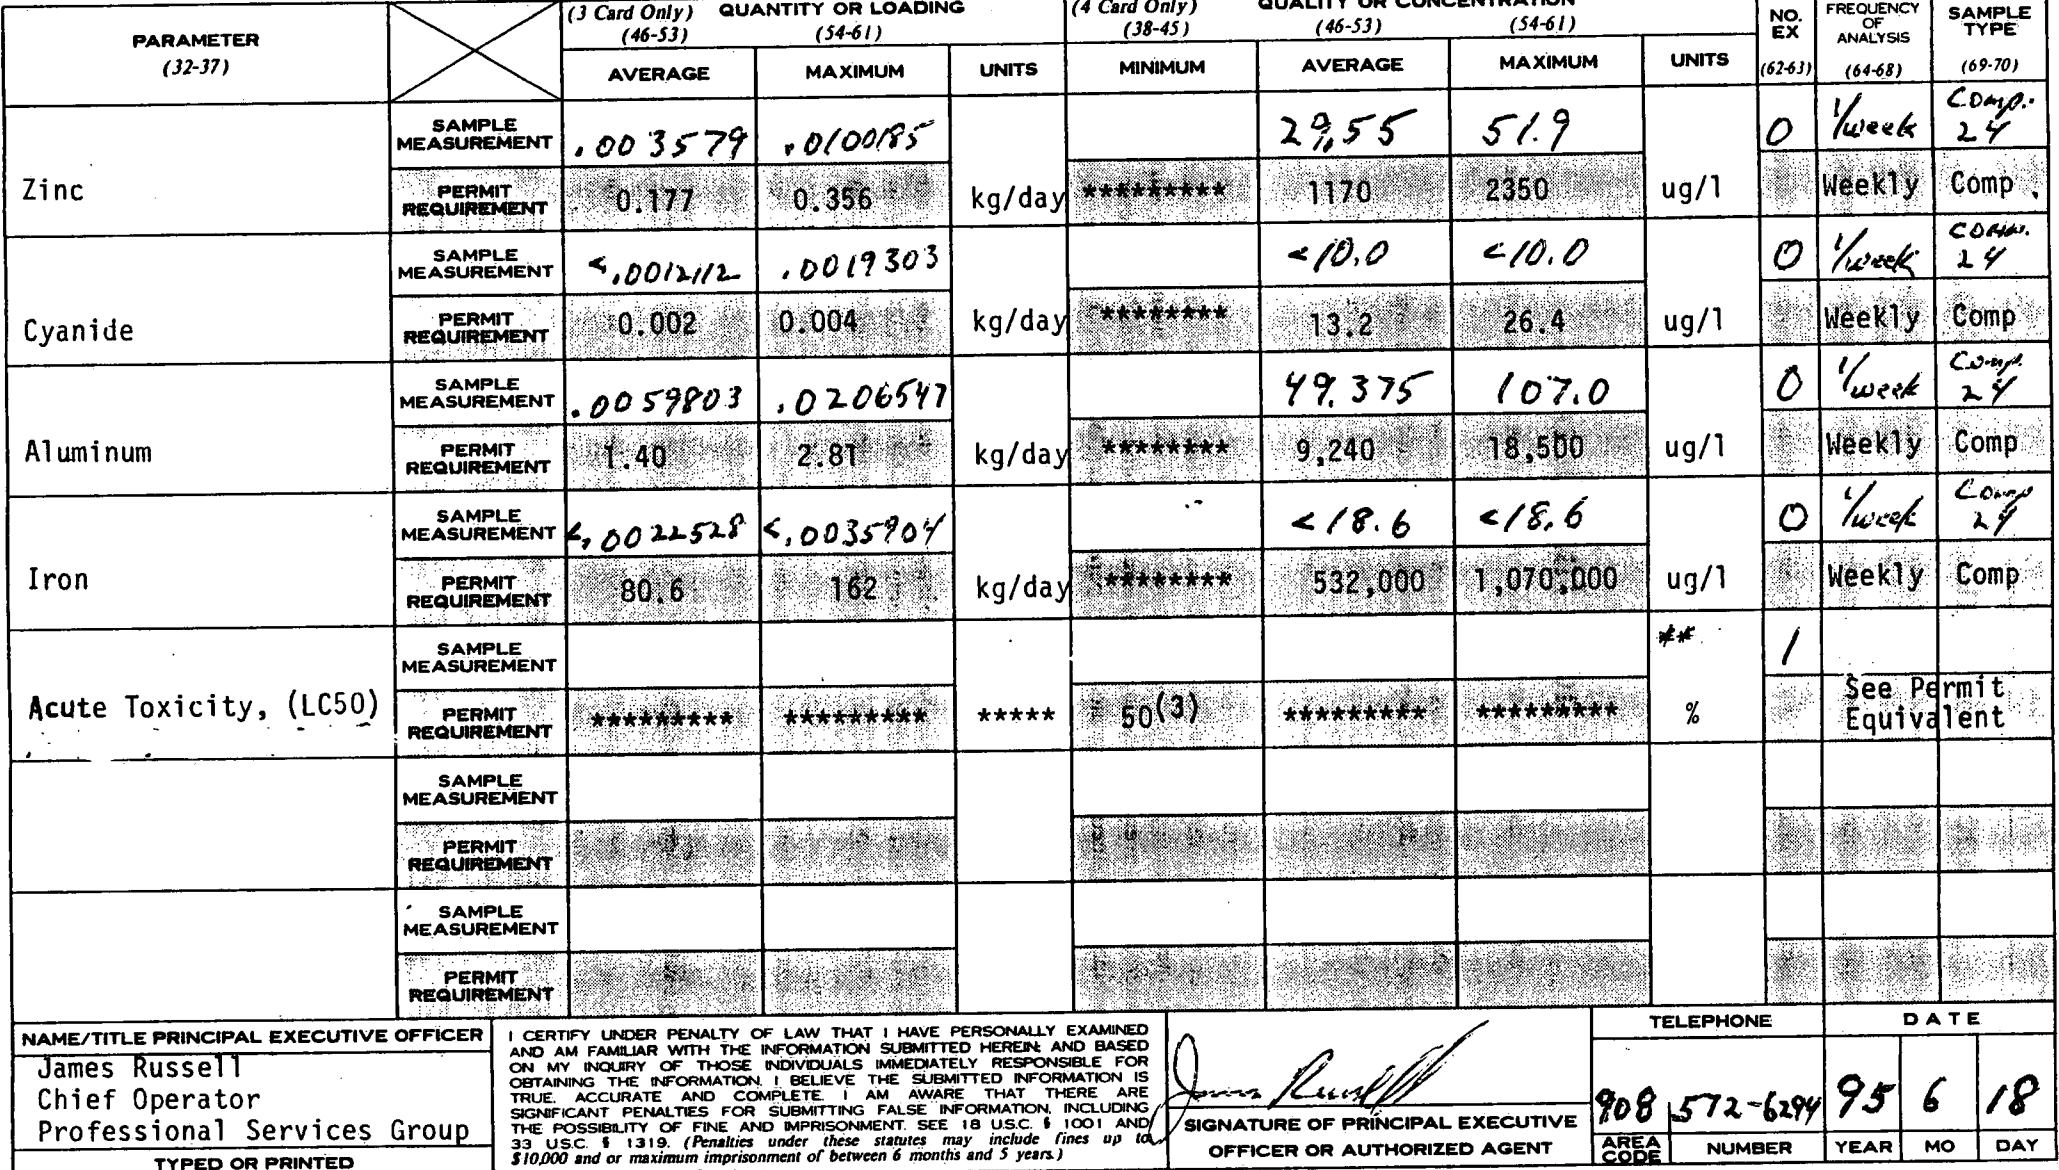 (3 Card Only) QUANTITY OR LOADING (4 Card Only) QUALITY OR CONCENTRATION
PARAMETER (46-53) (54-61) (38-45) (46-53) (54-61) NO. EX FREQUENCY OF ANALYSIS SAMPLE TYPE
(32-37) AVERAGE MAXIMUM UNITS MINIMUM AVERAGE MAXIMUM UNITS (62-63) (64-68) (69-70)
SAMPLE MEASUREMENT .003579 .0100185 29.55 51.9 0 1/week Comp. 24
Zinc PERMIT REQUIREMENT 0.177 0.356 kg/day ********* 1170 2350 ug/l Weekly Comp.
SAMPLE MEASUREMENT <.0012112 .0019303 <10.0 <10.0 0 1/week Comp. 24
Cyanide PERMIT REQUIREMENT 0.002 0.004 kg/day ******** 13.2 26.4 ug/l Weekly Comp
SAMPLE MEASUREMENT .0059803 .0206547 49.375 107.0 0 1/week Comp. 24
Aluminum PERMIT REQUIREMENT 1.40 2.81 kg/day ******** 9,240 18,500 ug/l Weekly Comp
SAMPLE MEASUREMENT <.0022528 <.0035904 <18.6 <18.6 0 1/week Comp 24
Iron PERMIT REQUIREMENT 80.6 162 kg/day ******** 532,000 1,070,000 ug/l Weekly Comp
SAMPLE MEASUREMENT ** 1
Acute Toxicity, (LC50) PERMIT REQUIREMENT ********* ********* ***** 50(3) ********* ********* % See Permit Equivalent
SAMPLE MEASUREMENT
PERMIT REQUIREMENT
SAMPLE MEASUREMENT
PERMIT REQUIREMENT
NAME/TITLE PRINCIPAL EXECUTIVE OFFICER
James Russell
Chief Operator
Professional Services Group
TYPED OR PRINTED
I CERTIFY UNDER PENALTY OF LAW THAT I HAVE PERSONALLY EXAMINED
AND AM FAMILIAR WITH THE INFORMATION SUBMITTED HEREIN; AND BASED
ON MY INQUIRY OF THOSE INDIVIDUALS IMMEDIATELY RESPONSIBLE FOR
OBTAINING THE INFORMATION. I BELIEVE THE SUBMITTED INFORMATION IS
TRUE, ACCURATE AND COMPLETE. I AM AWARE THAT THERE ARE
SIGNIFICANT PENALTIES FOR SUBMITTING FALSE INFORMATION, INCLUDING
THE POSSIBILITY OF FINE AND IMPRISONMENT. SEE 18 U.S.C. § 1001 AND
33 U.S.C. § 1319. (Penalties under these statutes may include fines up to
$10,000 and or maximum imprisonment of between 6 months and 5 years.)
James Russell
SIGNATURE OF PRINCIPAL EXECUTIVE
OFFICER OR AUTHORIZED AGENT
TELEPHONE
908 572-6294
AREA CODE NUMBER
DATE
95 6 18
YEAR MO DAY